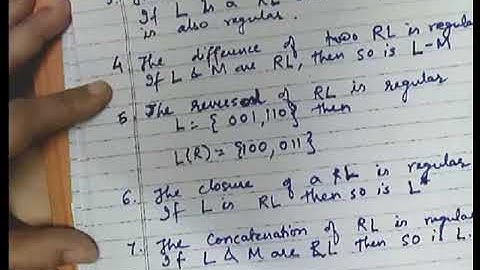 If L is a RL
is also regular.
4 The difference of two RL is regular
If L & M are RL, then so is L-M
5. The reversal of RL is regular
L = { 001, 110 } then
L(R) = {100, 011}
6. The closure of a RL is regular
If L is RL then so is L*
7. The concatenation of RL is regular
If L & M are RL then so is L.